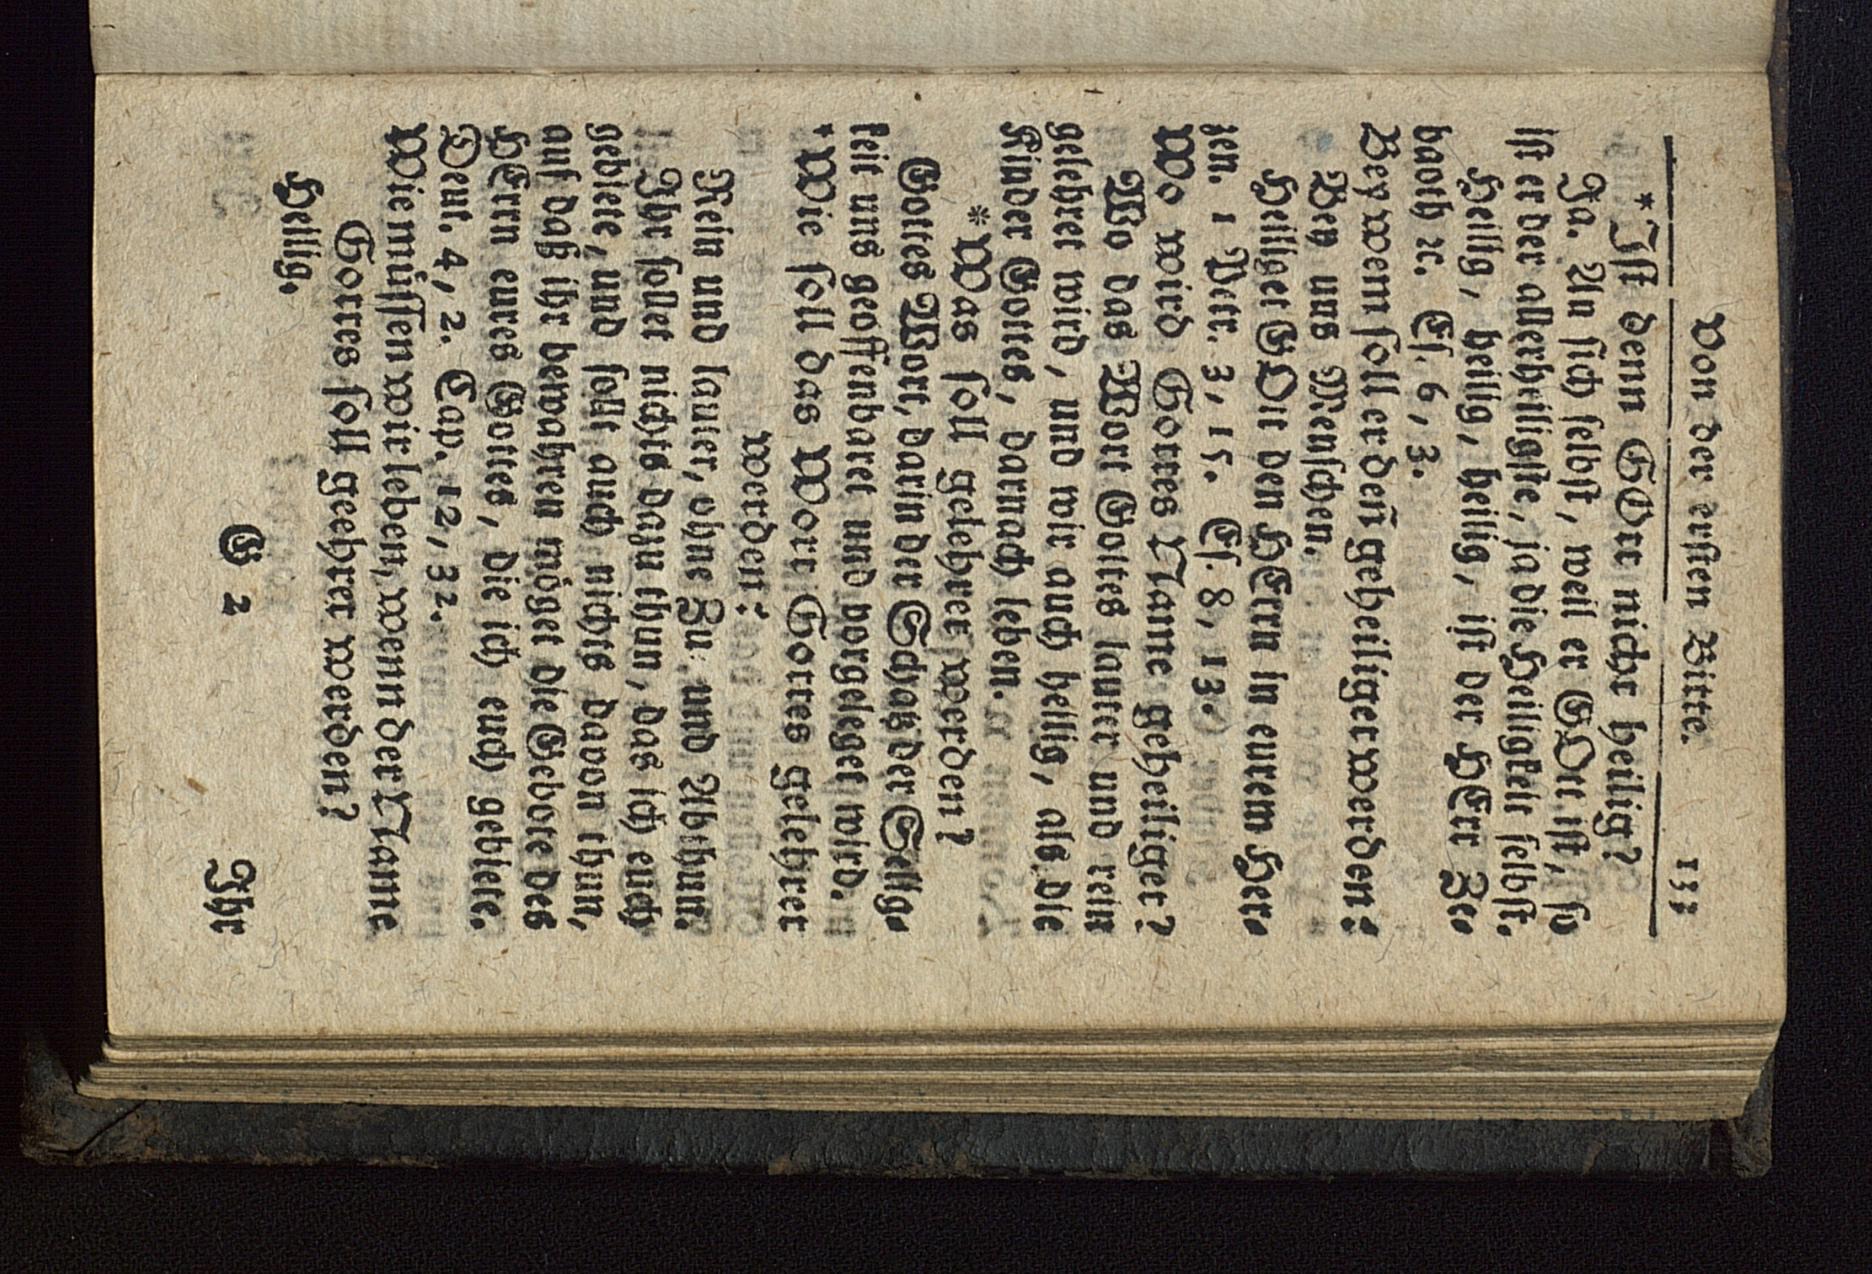 Von der erſten Bitte. 133
*Iſt denn GOtt nicht heilig?
Ja. An ſich ſelbſt, weil er GOtt iſt, ſo
iſt er der allerheiligſte, ja die Heiligkeit ſelbſt.
Heilig, heilig, heilig, iſt der HErr Ze⸗
baoth ꝛc. Eſ. 6, 3.
Bey wem ſoll er deñ geheiliget werden?
Bey uns Menſchen.
Heiliget GOtt den HErrn in eurem Her⸗
zen. 1 Petr. 3, 15. Eſ. 8, 13.
Wo wird Gottes Name geheiliget?
Wo das Wort Gottes lauter und rein
gelehret wird, und wir auch heilig, als die
Kinder Gottes, darnach leben.
*Was ſoll gelehret werden?
Gottes Wort, darin der Schatz der Selig⸗
keit uns geoffenbaret und vorgeleget wird.
*Wie ſoll das Wort Gottes gelehret
werden?
Rein und lauter, ohne Zu⸗ und Abthun.
Ihr ſollet nichts dazu thun, das ich euch
gebiete, und ſollt auch nichts davon thun,
auf daß ihr bewahren möget die Gebote des
HErrn eures Gottes, die ich euch gebiete.
Deut. 4, 2. Cap. 12, 32.
Wie müſſen wir leben, wenn der Name
Gottes ſoll geehret werden?
Heilig.
G 2 Ihr